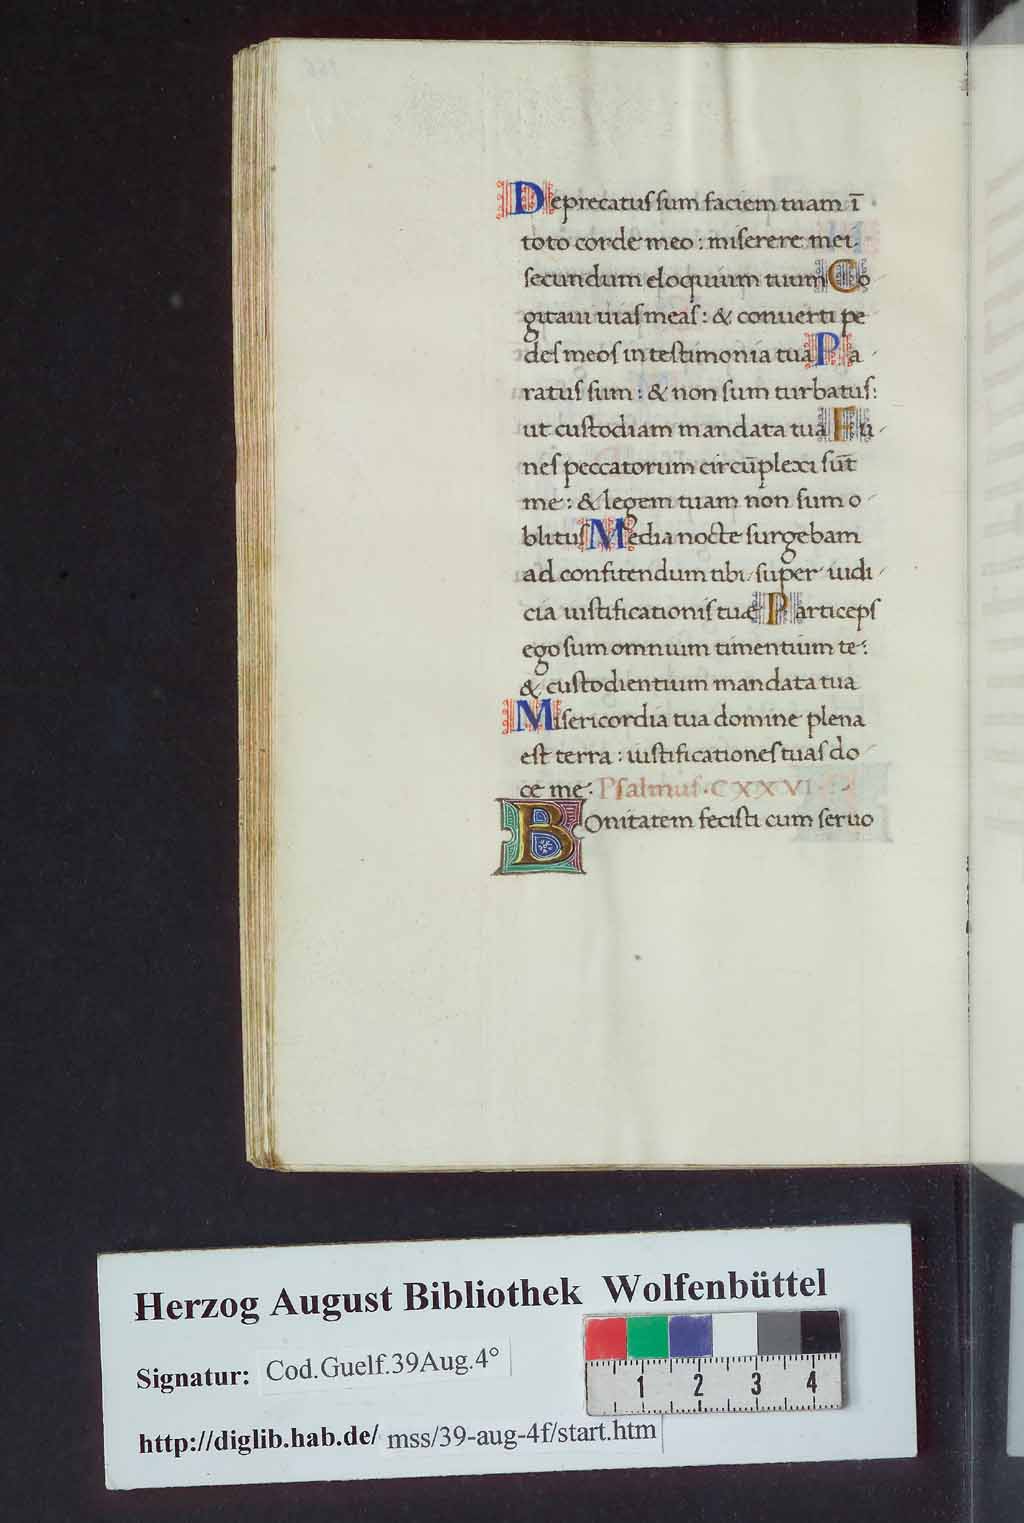 Deprecatus sum faciem tuam ī
toto corde meo : miserere mei.
secundum eloquium tuum Co
gitaui uias meas : & conuerti pe
des meos in testimonia tua Pa
ratus sum : & non sum turbatus :
ut custodiam mandata tua Fu
nes peccatorum circūplexi sūt
me : & legem tuam non sum o
blitus Media nocte surgebam
ad confitendum tibi super iudi
cia iustificationis tuæ Particeps
ego sum omnium timentium te :
& custodientium mandata tua
Misericordia tua domine plena
est terra : iustificationes tuas do
ce me. Psalmus . CXXVI
Bonitatem fecisti cum seruo
Herzog August Bibliothek Wolfenbüttel
Signatur: Cod.Guelf.39Aug.4°
http://diglib.hab.de/ mss/39-aug-4f/start.htm
1 2 3 4